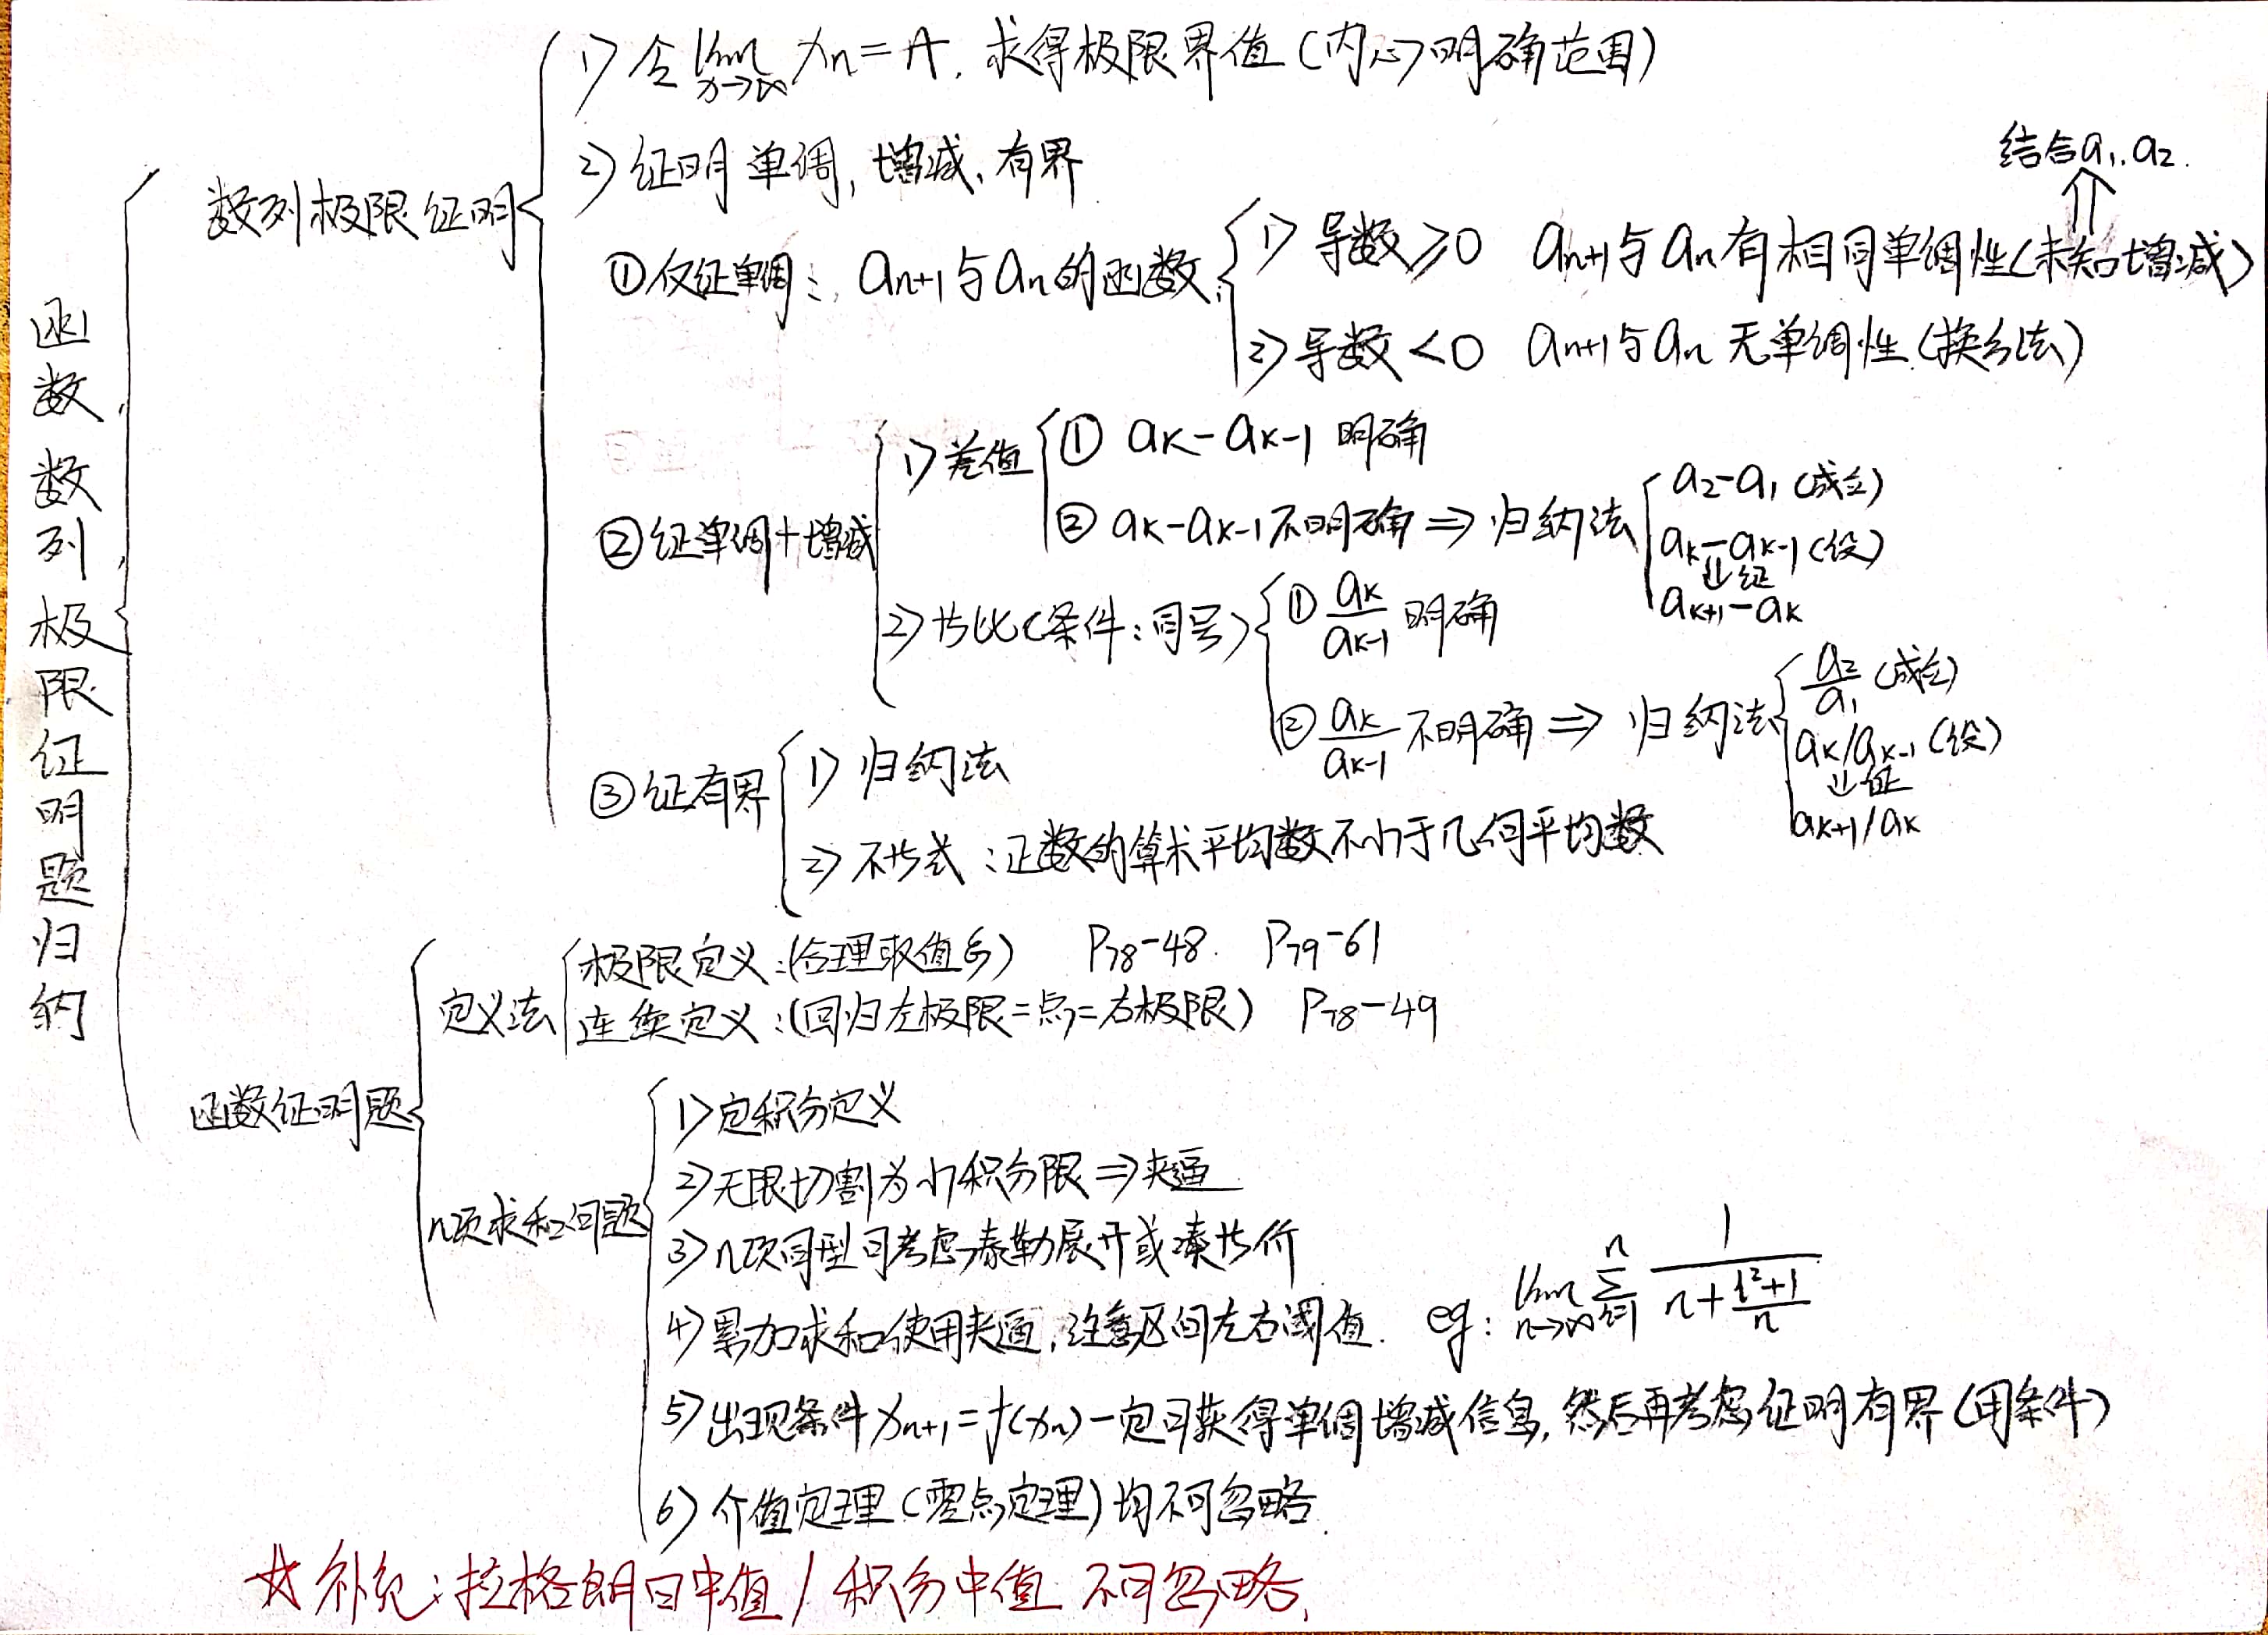 函数、数列、极限证明题归纳
数列极限证明
1) 令 lim x→∞ xn = A, 求得极限界值 (内心明确范围)
2) 证明单调, 增减, 有界
①仅证单调: an+1与an的函数
1) 导数≥0 an+1与an有相同单调性(未知增减)
⇑ 结合a1, a2.
2) 导数<0 an+1与an无单调性 (换方法)
②证单调+增减
1) 差值
① ak-ak-1 明确
② ak-ak-1不明确 ⇒ 归纳法
a2-a1 (成立)
ak-ak-1 (设)
⇓证
ak+1-ak
2) 比(条件:同号)
① ak/ak-1 明确
② ak/ak-1 不明确 ⇒ 归纳法
a2/a1 (成立)
ak/ak-1 (设)
⇓证
ak+1/ak
③证有界
1) 归纳法
2) 不等式: 正数的算术平均数不小于几何平均数
函数证明题
定义法
极限定义: (合理取值ε) P78-48. P79-61
连续定义: (回归左极限=点=右极限) P78-49
n项求和问题
1) 定积分定义
2) 无限切割为小积分限 ⇒ 夹逼
3) n项同型可考虑泰勒展开或凑等价
4) 累加求和使用夹逼, 注意区间左右阈值. eg: lim n→∞ Σ i=1 n 1/(n+(i²+1)/n)
5) 出现条件xn+1=f(xn)一定可获得单调增减信息, 然后再考虑证明有界 (用条件)
6) 介值定理 (零点定理) 均不可忽略.
☆补充: 拉格朗日中值 / 积分中值 不可忽略.